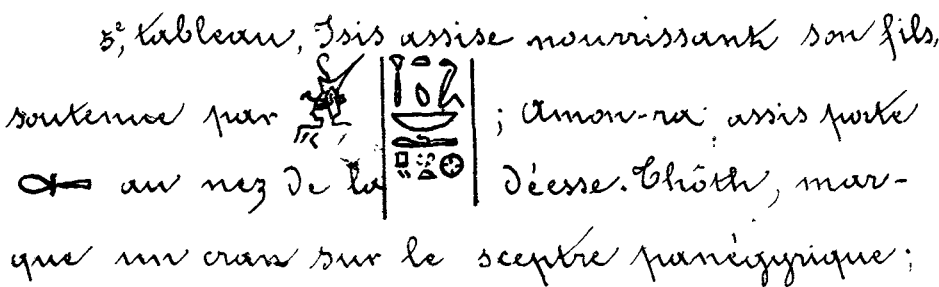 5º, tableau, Isis assise nourrissant son fils,
soutenue par ; Amon-ra assis porte
au nez de la déesse. Thôth, mar-
que un cran sur le sceptre panégyrique;